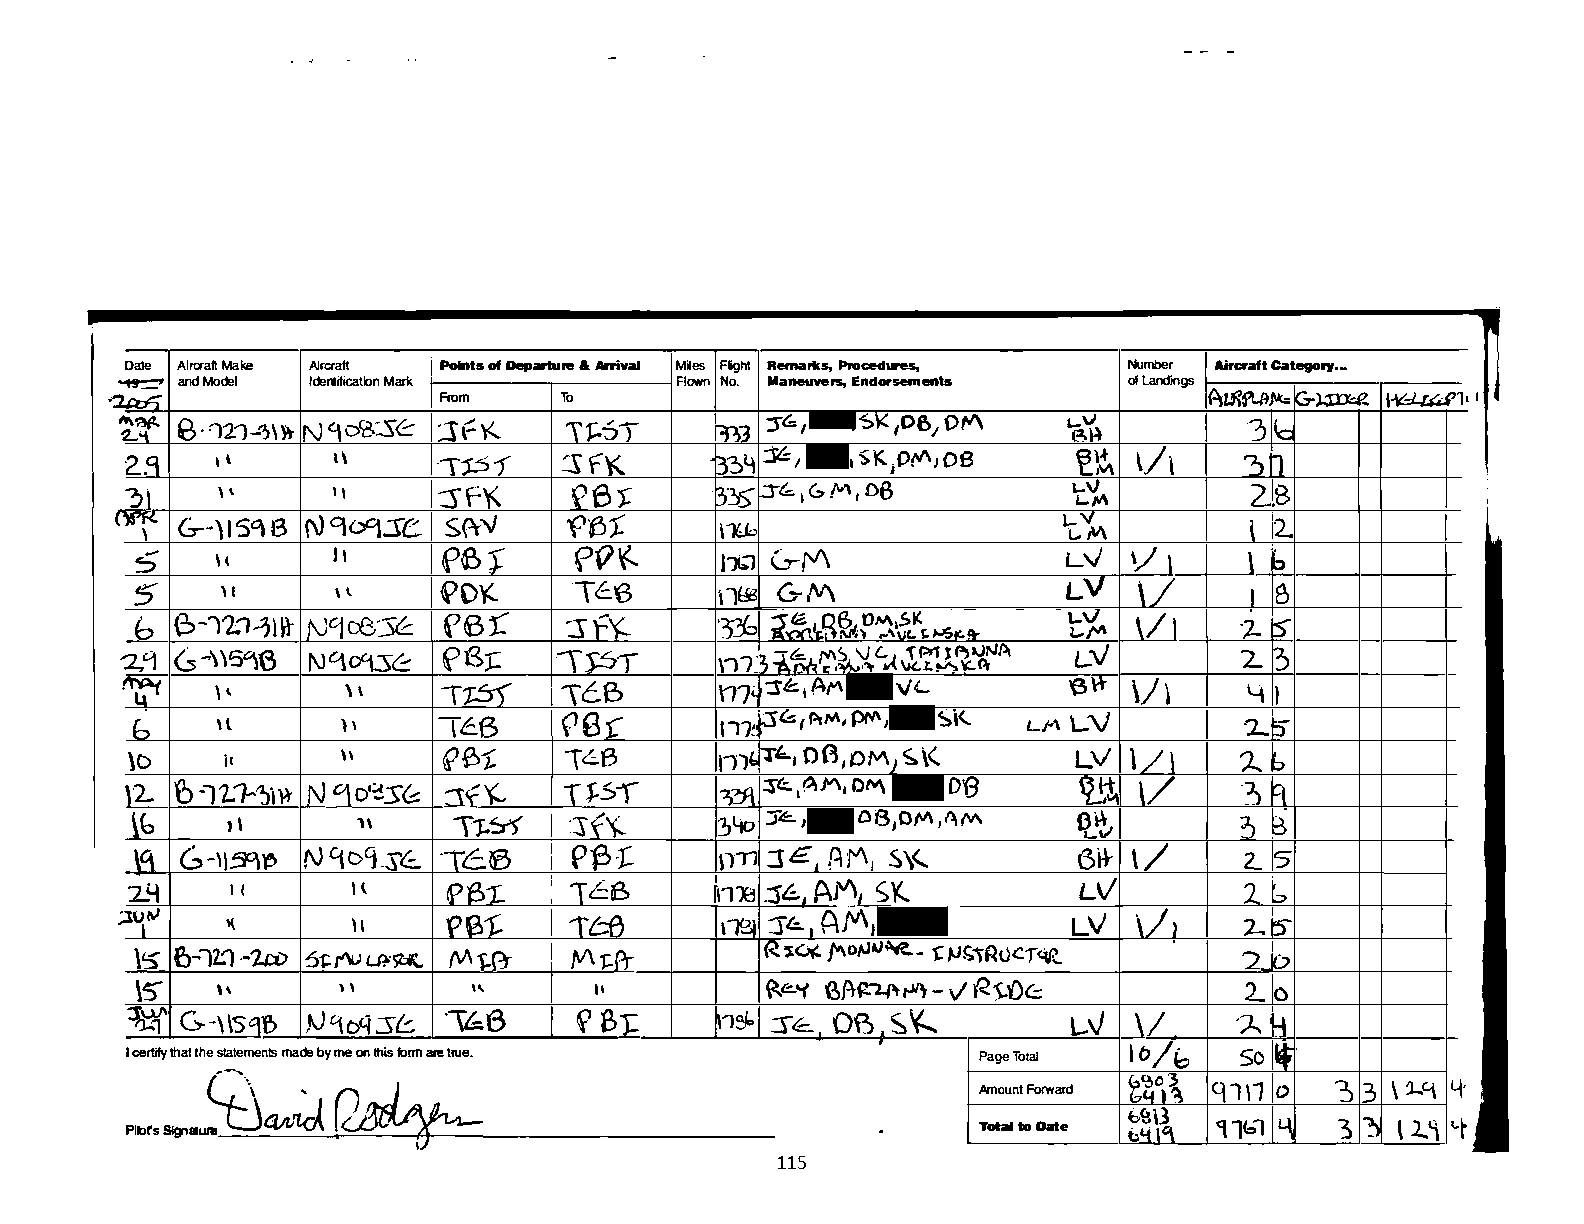 Date Aircraft Make and Model Aircraft Identification Mark Points of Departure & Arrival Miles Flown Flight No. Remarks, Procedures, Maneuvers, Endorsements Number of Landings Aircraft Category...
2005 From To AIRPLANE GLIDER
MAR 24 B-727-31H N908JE JFK TIST 333 JE, SK, DB, DM LV BH 3 6
29 " " TIST JFK 334 JE, , SK, DM, DB BH LM 1/1 3 7
31 " " JFK PBI 335 JE, GM, DB LV LM 2 8
APR 1 G-1159B N909JE SAV PBI 1766 LV LM 1 2
5 " " PBI PDK 1767 GM LV 1/1 1 6
5 " " PDK TEB 1768 GM LV 1/ 1 8
6 B-727-31H N908JE PBI JFK 336 JE, DB, DM, SK MUCINSKA LV LM 1/1 2 5
29 G-1159B N909JE PBI TIST 1773 JE, MS, VC, TATIANNA ADRIANA MUCINSKA LV 2 3
MAY 4 " " TIST TEB 1774 JE, AM VC BH 1/1 4 1
6 " " TEB PBI 1775 JE, AM, DM, SK LM LV 2 5
10 " " PBI TEB 1776 JE, DB, DM, SK LV 1/1 2 6
12 B-727-31H N908JE JFK TIST 339 JE, AM, DM DB BH LM 1/ 3 9
16 " " TIST JFK 340 JE, DB, DM, AM BH LV 3 8
19 G-1159B N909JE TEB PBI 1777 JE, AM, SK BH 1/ 2 5
24 " " PBI TEB 1778 JE, AM, SK LV 2 6
JUN 1 " " PBI TEB 1781 JE, AM, LV 1/1 2 5
15 B-727-200 SIMULATOR MIA MIA RICK MONNAR - INSTRUCTOR 2 0
15 " " " " REY BARZANA - √ RIDE 2 0
JUN 29 G-1159B N909JE TEB PBI 1786 JE, DB, SK LV 1/ 2 4
I certify that the statements made by me on this form are true. Page Total 10/6 50 4
Amount Forward 6803 6413 9717 0 3 3 129 4
Pilot's Signature David Rodgers Total to Date 6813 6419 9767 4 3 3 129 4
115